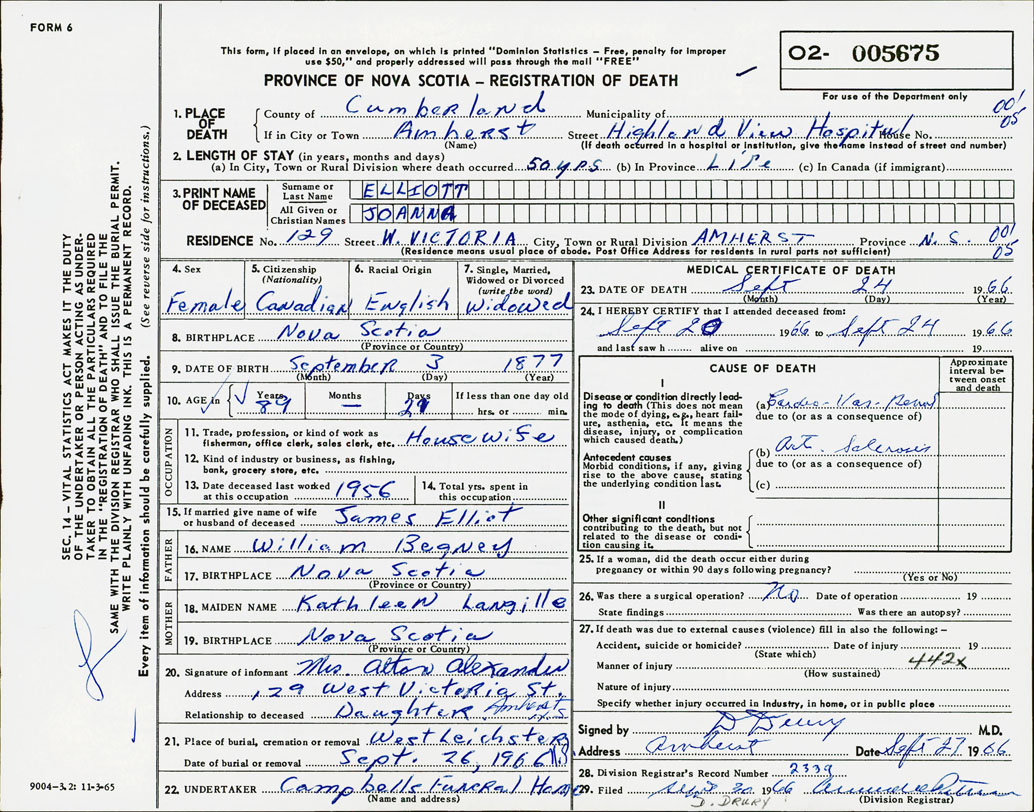 FORM 6
This form, if placed in an envelope, on which is printed "Dominion Statistics – Free, penalty for improper
use $50," and properly addressed will pass through the mail "FREE"
O2- 005675
For use of the Department only
PROVINCE OF NOVA SCOTIA – REGISTRATION OF DEATH
1. PLACE OF DEATH
County of Cumberland Municipality of 001
05
If in City or Town Amherst Street Highland View Hospital House No.
(Name) (If death occurred in a hospital or institution, give the name instead of street and number)
2. LENGTH OF STAY (in years, months and days)
(a) In City, Town or Rural Division where death occurred 50 yrs (b) In Province Life (c) In Canada (if immigrant)
3. PRINT NAME OF DECEASED
Surname or Last Name ELLIOTT
All Given or Christian Names JOANNA
RESIDENCE No. 129 Street W. VICTORIA City, Town or Rural Division AMHERST Province N.S. 001
05
(Residence means usual place of abode. Post Office Address for residents in rural parts not sufficient)
4. Sex Female
5. Citizenship (Nationality) Canadian
6. Racial Origin English
7. Single, Married, Widowed or Divorced (write the word) Widowed
8. BIRTHPLACE Nova Scotia
(Province or Country)
9. DATE OF BIRTH September 3 1877
(Month) (Day) (Year)
10. AGE in Years 89 Months — Days 21 If less than one day old
hrs. or min.
OCCUPATION
11. Trade, profession, or kind of work as
fisherman, office clerk, sales clerk, etc. Housewife
12. Kind of industry or business, as fishing,
bank, grocery store, etc.
13. Date deceased last worked
at this occupation 1956
14. Total yrs. spent in
this occupation
15. If married give name of wife
or husband of deceased James Elliot
FATHER
16. NAME William Begney
17. BIRTHPLACE Nova Scotia
(Province or Country)
MOTHER
18. MAIDEN NAME Kathleen Langille
19. BIRTHPLACE Nova Scotia
(Province or Country)
20. Signature of informant Mrs. Alton Alexander
Address 129 West Victoria St.
Relationship to deceased Daughter Amherst N.S
21. Place of burial, cremation or removal West Leichster
Date of burial or removal Sept. 26, 1966
22. UNDERTAKER Campbells Funeral Home
(Name and address)
MEDICAL CERTIFICATE OF DEATH
23. DATE OF DEATH Sept 24 1966
(Month) (Day) (Year)
24. I HEREBY CERTIFY that I attended deceased from:
Sept 20 1966 to Sept 24 1966
and last saw h alive on 19
CAUSE OF DEATH
Approximate interval between onset and death
I
Disease or condition directly leading to death (This does not mean the mode of dying, e.g., heart failure, asthenia, etc. It means the disease, injury, or complication which caused death.)
(a) Cardio-Vas-Renal
due to (or as a consequence of)
Antecedent causes
Morbid conditions, if any, giving rise to the above cause, stating the underlying condition last.
(b) Art. Sclerosis
due to (or as a consequence of)
(c)
II
Other significant conditions
contributing to the death, but not related to the disease or condition causing it.
25. If a woman, did the death occur either during
pregnancy or within 90 days following pregnancy?
(Yes or No)
26. Was there a surgical operation? No Date of operation 19
State findings Was there an autopsy?
27. If death was due to external causes (violence) fill in also the following: –
Accident, suicide or homicide? Date of injury 19
(State which)
442x
Manner of injury
(How sustained)
Nature of injury
Specify whether injury occurred in industry, in home, or in public place
Signed by D Drury M.D.
Address Amherst Date Sept 27 1966
28. Division Registrar's Record Number 2339
29. Filed Sept 30 1966
D. DRURY
(Division Registrar)
SEC. 14 – VITAL STATISTICS ACT MAKES IT THE DUTY
OF THE UNDERTAKER OR PERSON ACTING AS UNDER-
TAKER TO OBTAIN ALL THE PARTICULARS REQUIRED
IN THE "REGISTRATION OF DEATH" AND TO FILE THE
SAME WITH THE DIVISION REGISTRAR WHO SHALL ISSUE THE BURIAL PERMIT.
WRITE PLAINLY WITH UNFADING INK. THIS IS A PERMANENT RECORD.
Every item of information should be carefully supplied. (See reverse side for instructions.)
9004-3.2: 11-3-65